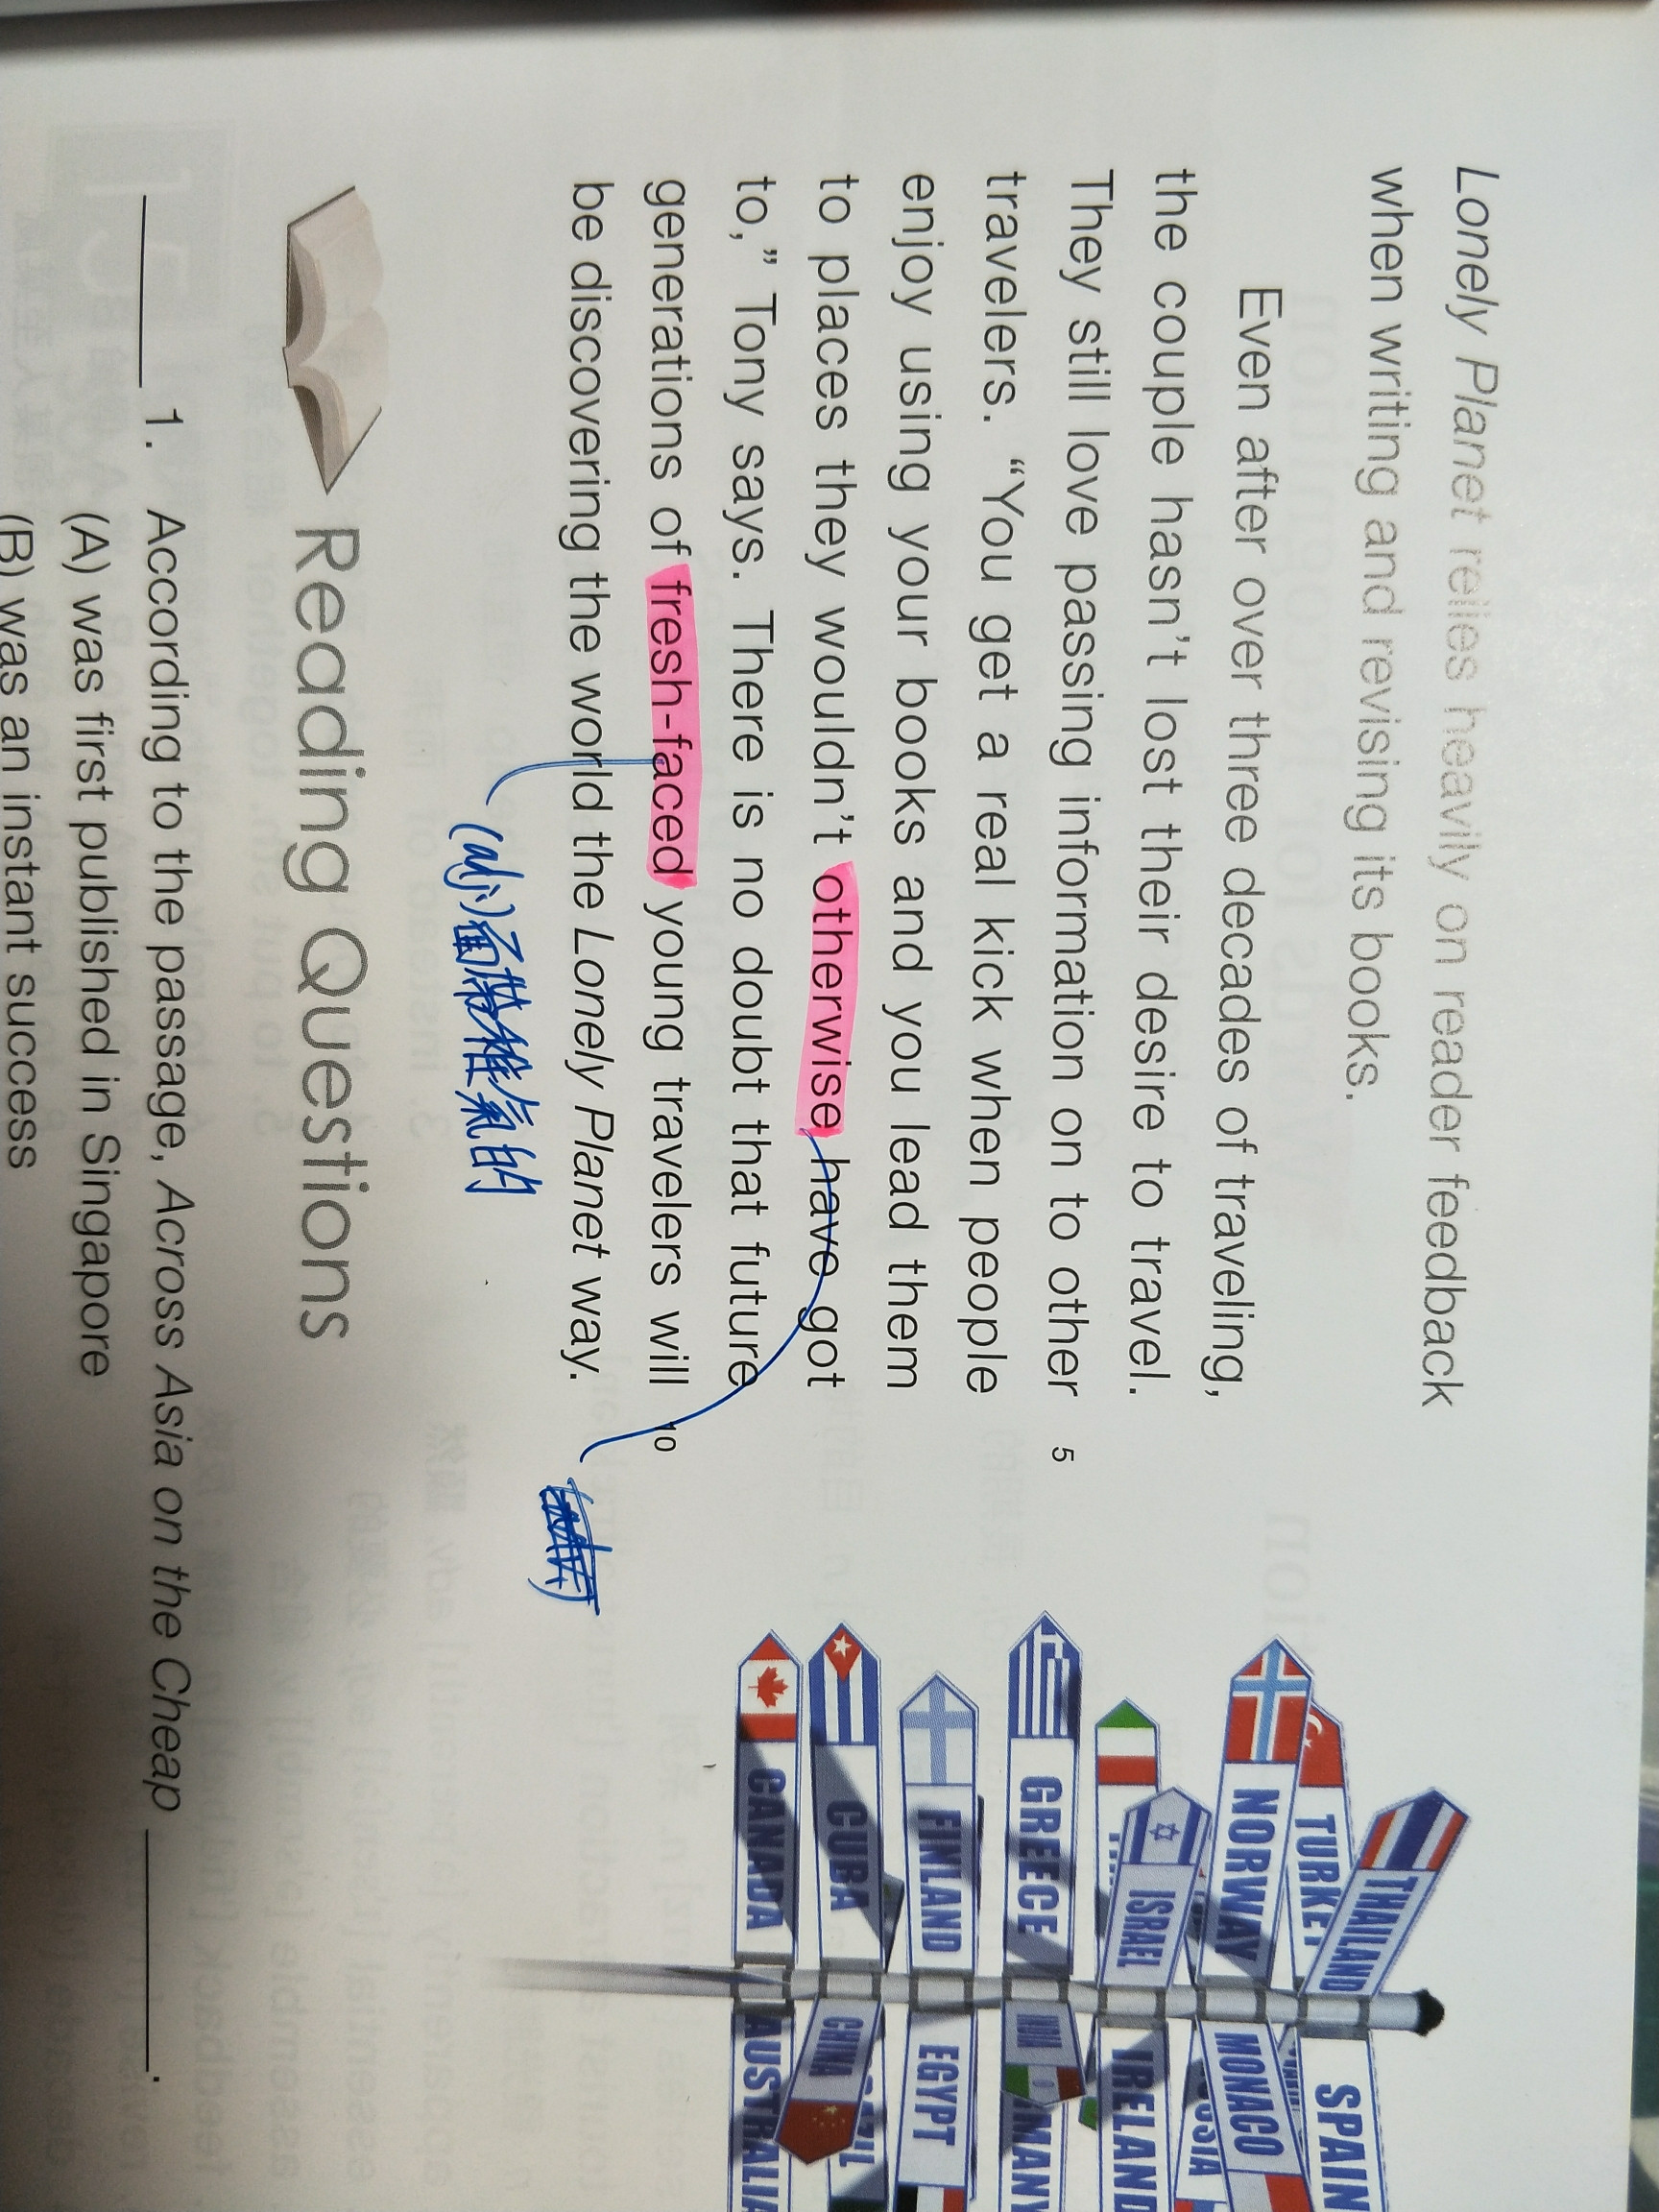 Lonely Planet relies heavily on reader feedback
when writing and revising its books.
Even after over three decades of traveling,
the couple hasn't lost their desire to travel.
They still love passing information on to other 5
travelers. “You get a real kick when people
enjoy using your books and you lead them
to places they wouldn't otherwise have got
to,” Tony says. There is no doubt that future
generations of fresh-faced young travelers will 10
be discovering the world the Lonely Planet way.
(adj.)面帶稚氣的
THAILAND
TURKEY
SPAIN
NORWAY
MONACO
ISRAEL
IRELAND
GREECE
INDIA
FINLAND
EGYPT
CUBA
CHINA
CANADA
AUSTRALIA
Reading Questions
1. According to the passage, Across Asia on the Cheap
(A) was first published in Singapore
(B) was an instant success